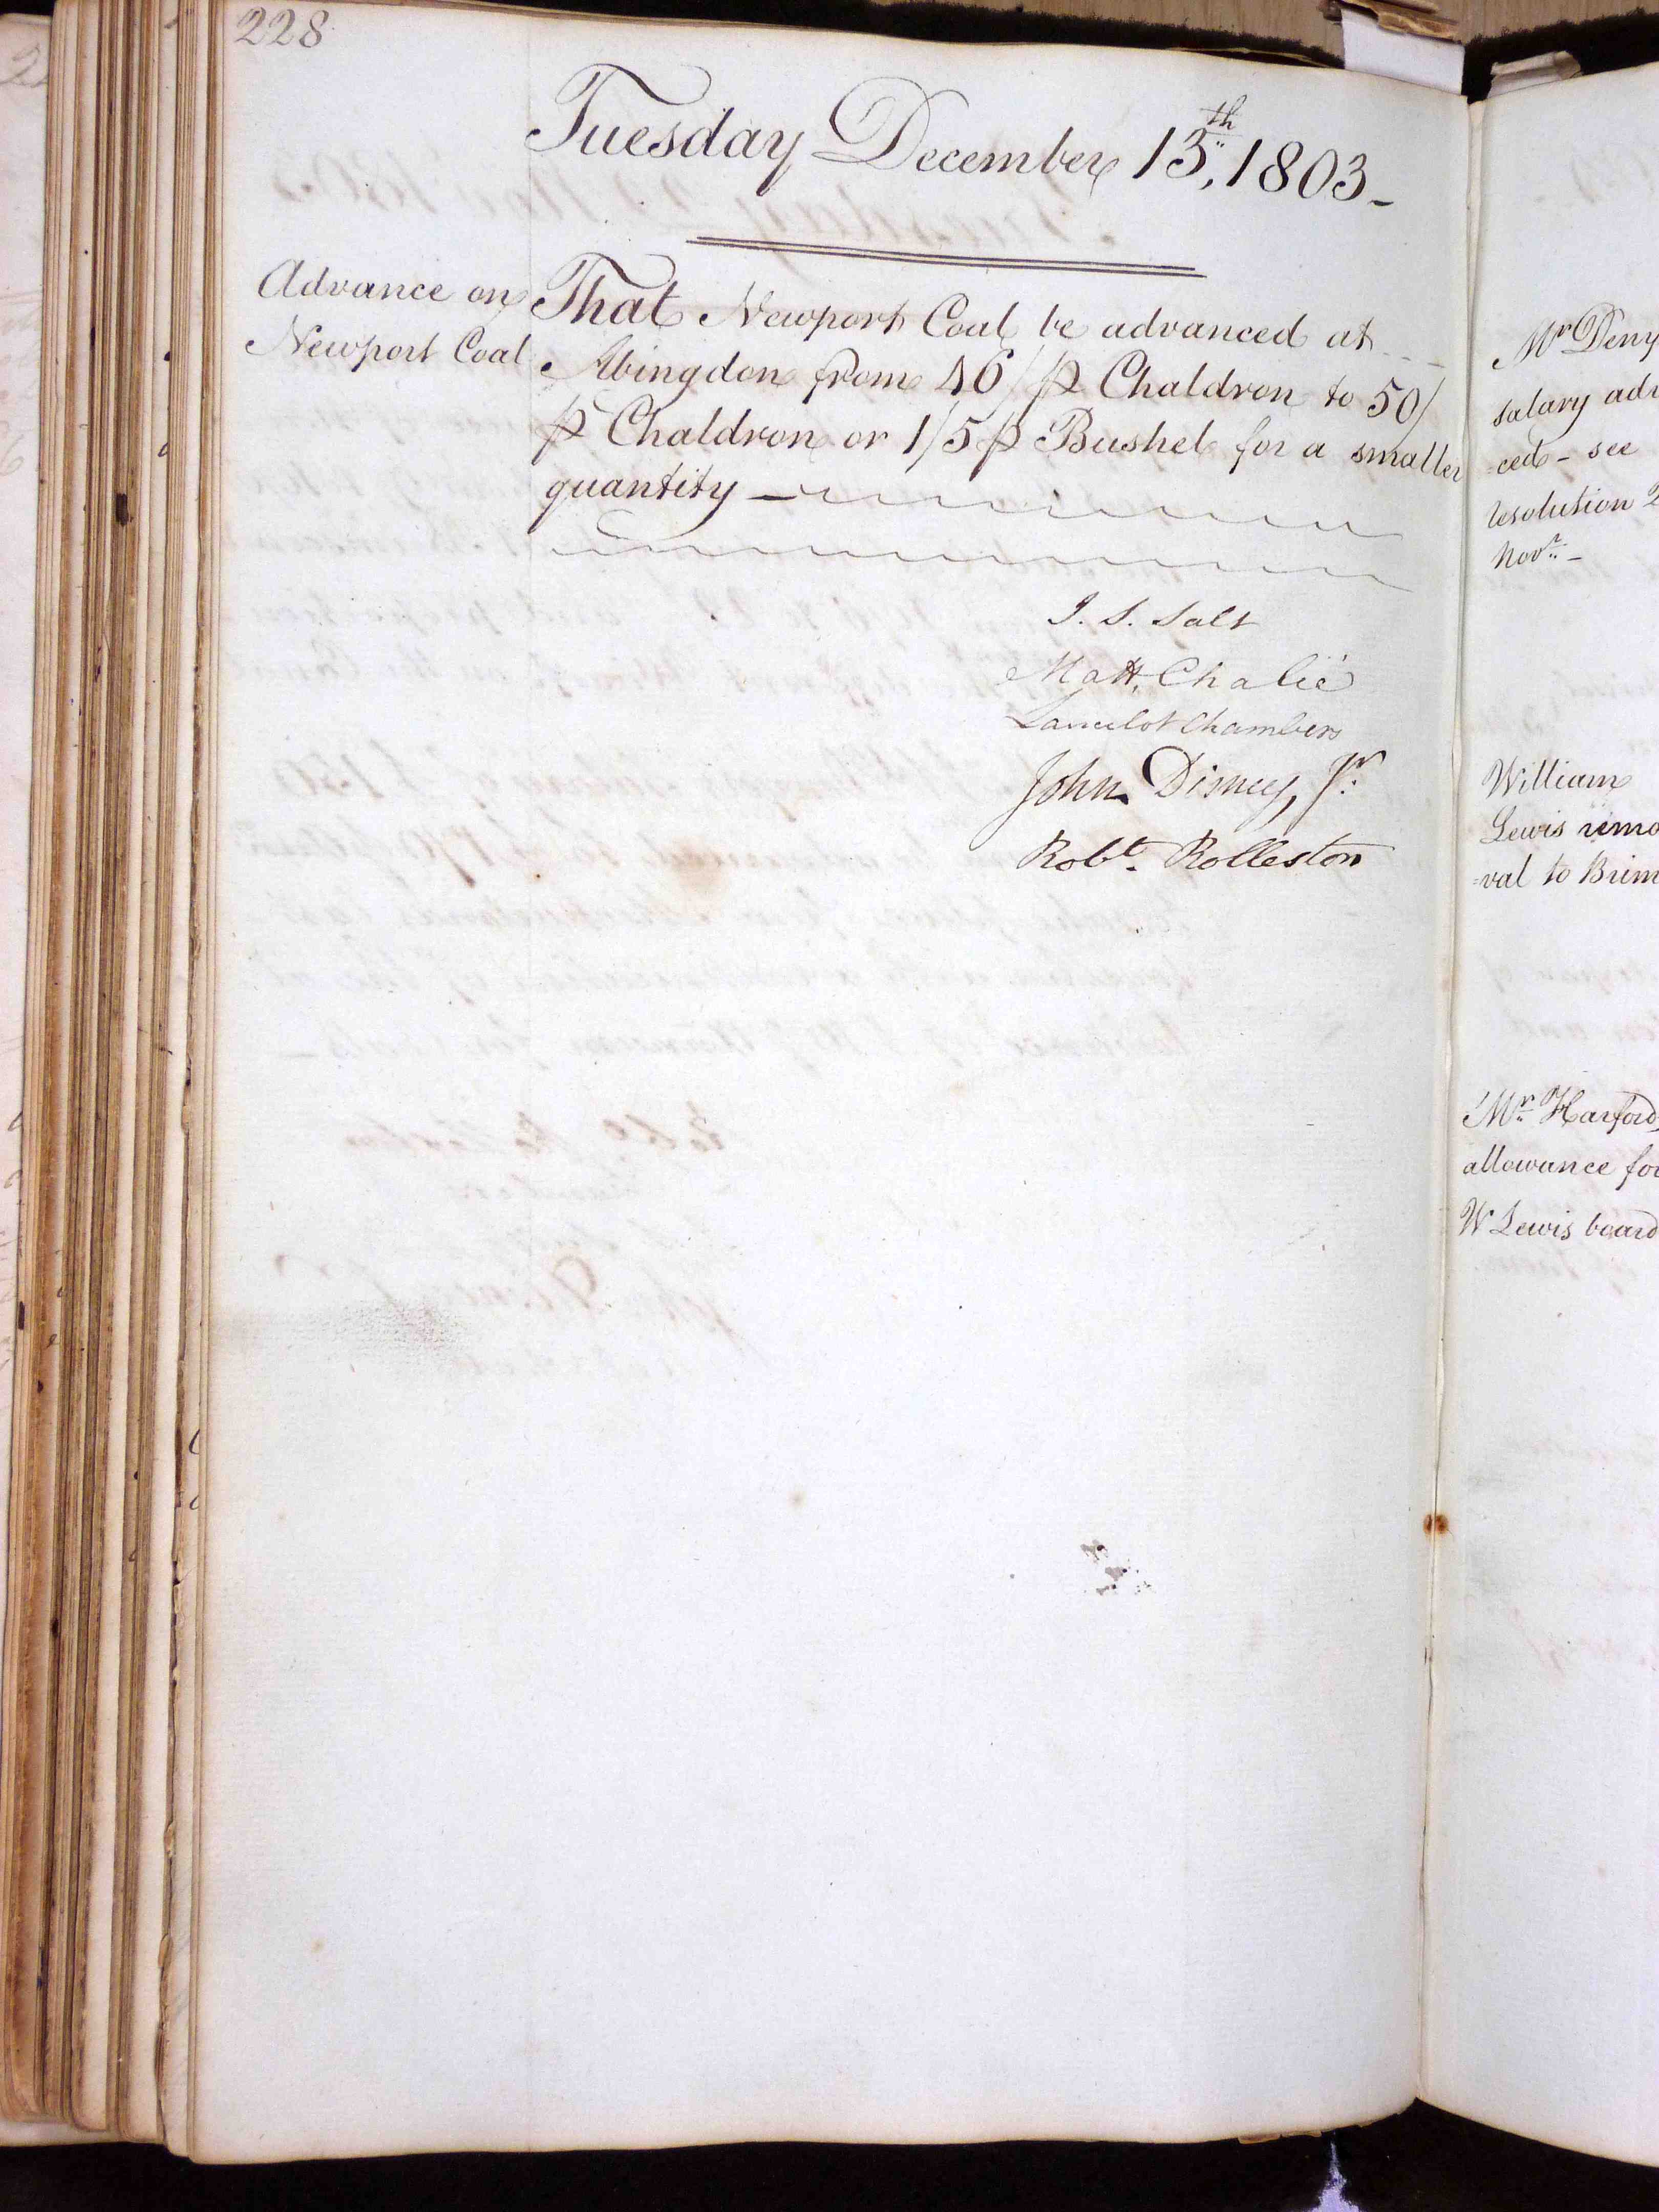 228
Tuesday December 13th, 1803-
Advance on
Newport Coal
That Newport Coal be advanced at
Abingdon from 46/ ⅌ Chaldron to 50/
⅌ Chaldron or 1/5 ⅌ Bushel for a smaller
quantity —
J. S. Salt
Matt. Chalié
Lancelot Chambers
John Disney, Jr.
Robt. Rolleston
Mr Deny
salary adv
=ced - see
resolution 2
Novr. -
William
Lewis remo
=val to Brim
Mr. Harford,
allowance for
W Lewis board